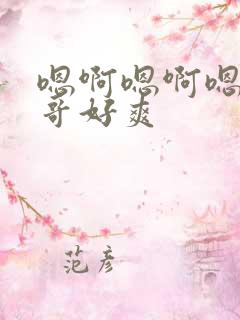 嗯啊嗯啊嗯
哥好爽
范彦